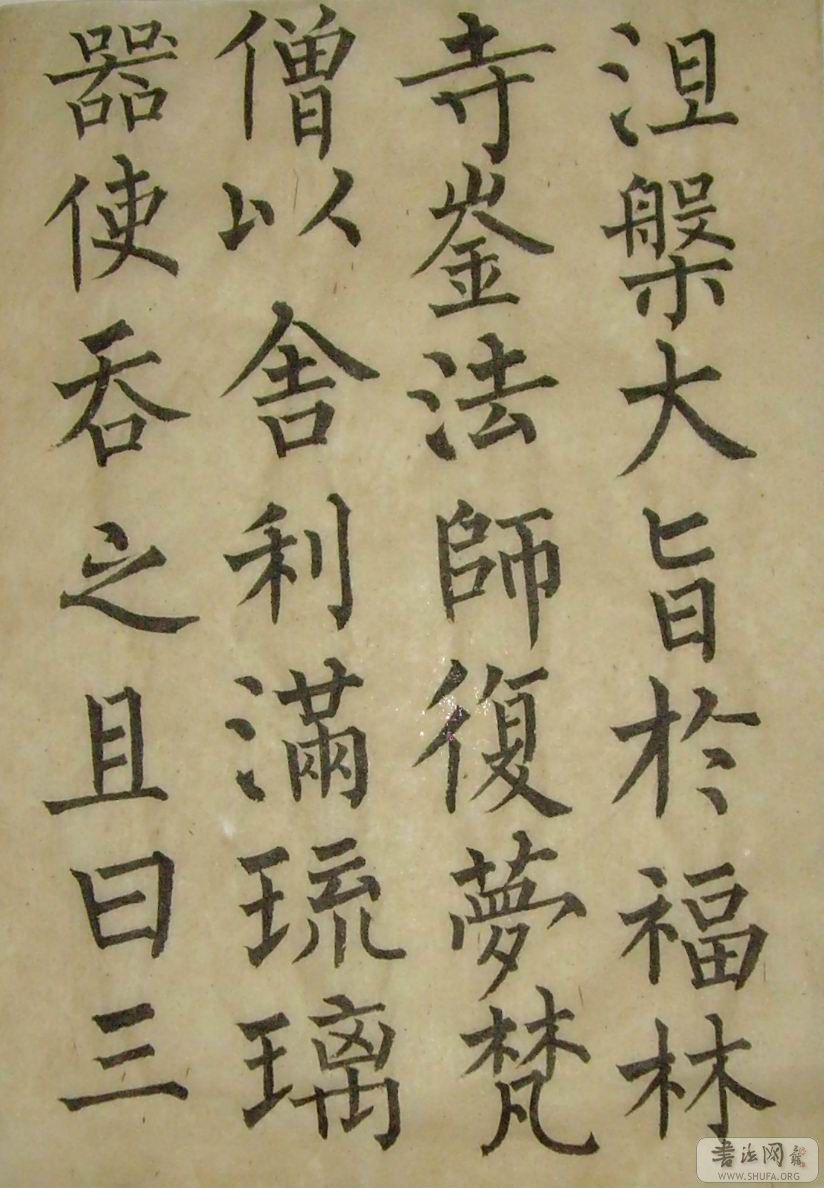 涅槃大旨於福林
寺崟法師復夢梵
僧以舍利滿琉璃
器使吞之且曰三
書法网
WWW.SHUFA.ORG